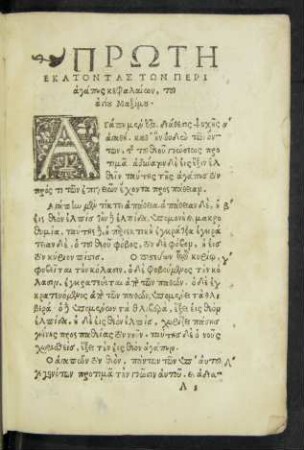 ΠΡΩΤΗ
ΕΚΑΤΟΝΤΑΣ ΤΩΝ ΠΕΡΙ
ἀγάπης κεφαλαίων, τοῦ
ἁγίου Μαξίμου.
ΑΓάπη μέν ἐστι, διάθεσις ψυχῆς
ἀγαθὴ, καθ' ἣν οὐδὲν τῶν ὄν-
των, τῆς τοῦ θεοῦ γνώσεως προ-
τιμᾷ. ἀδύνατον δὲ εἰς ἕξιν ἐλ-
θεῖν ταύτης τῆς ἀγάπης τὸν
πρός τι τῶν ἐπιγείων ἔχοντα προσπάθειαν.
Ἀγάπην μὲν τίκτει ἀπάθεια. ἀπάθειαν δὲ, ἡ β
εἰς θεὸν ἐλπίς. τὴν δὲ ἐλπίδα, ὑπομονὴ καὶ μακρο-
θυμία. ταύτας δὲ, ἡ περιεκτικὴ ἐγκράτεια. ἐγκρά-
τειαν δὲ, ὁ τοῦ θεοῦ φόβος. τὸν δὲ φόβον, ἡ εἰς
τὸν κύριον πίστις.
Ὁ πιστεύων τῷ κυρίῳ,
φοβεῖται τὴν κόλασιν. ὁ δὲ φοβούμενος τὴν κό-
λασιν, ἐγκρατεύεται ἀπὸ τῶν παθῶν. ὁ δὲ ἐγ-
κρατευόμενος ἀπὸ τῶν παθῶν, ὑπομένει τὰ θλι-
βερά. ὁ δὲ ὑπομένων τὰ θλιβερὰ, ἕξει εἰς θεὸν
ἐλπίδα. ἡ δὲ εἰς θεὸν ἐλπὶς, χωρίζει πάσης
γηΐνης προσπαθείας τὸν νοῦν. ταύτης δὲ ὁ νοῦς
χωρισθεὶς, ἕξει τὴν εἰς θεὸν ἀγάπην.
Ὁ ἀγαπῶν τὸν θεὸν, πάντων τῶν ὑπ' αὐτοῦ Δ
γεγονότων προτιμᾷ τὴν γνῶσιν αὐτοῦ. καὶ ἀδια-